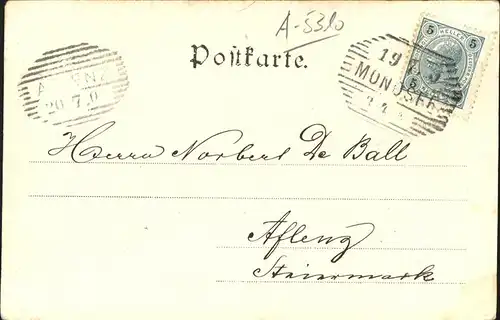 A-5310
Postkarte.
5 HELLER 5
MONDSEE
20 7 0
Herrn Norbert De Ball
Aflenz
Steiermark